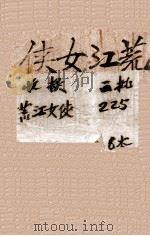 荒江女侠
二批
荒江女侠 225
6本
www.duxiu.com